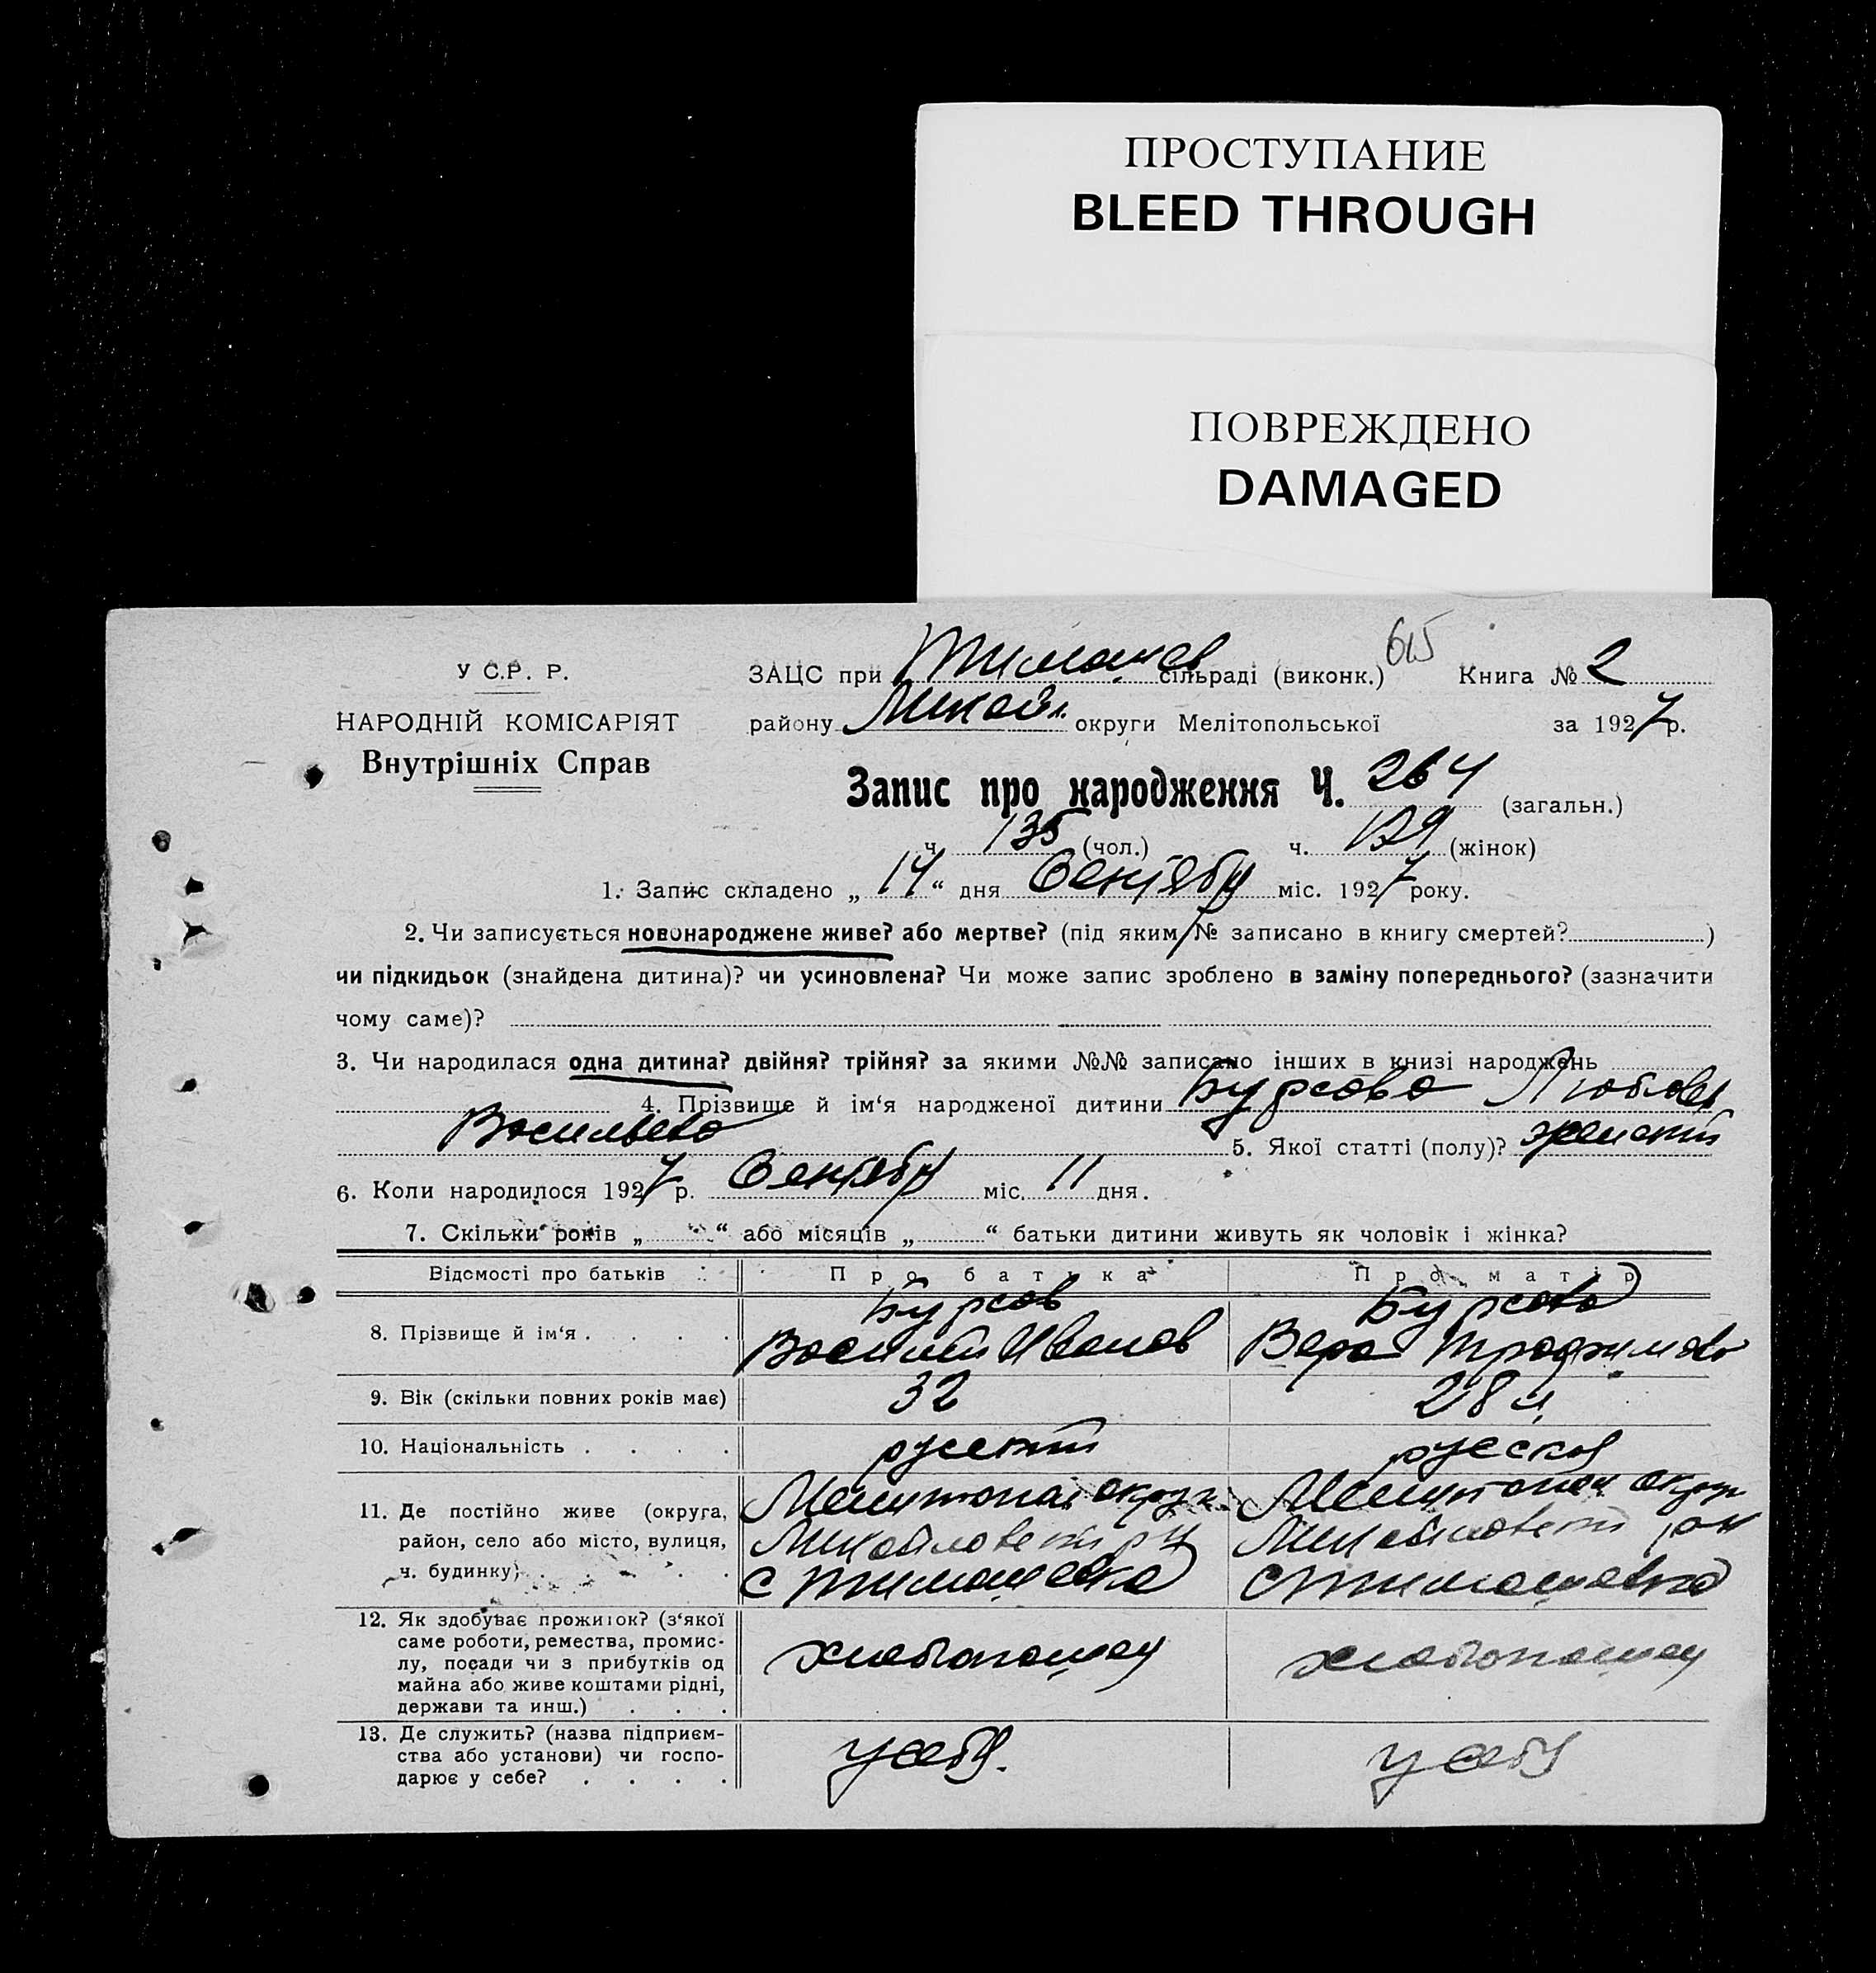 ПРОСТУПАНИЕ
BLEED THROUGH
ПОВРЕЖДЕНО
DAMAGED
615
У С.Р. Р. ЗАЦС при Тимошев сільраді (виконк.) Книга № 2
НАРОДНІЙ КОМІСАРІЯТ району Михайл. округи Мелітопольської за 1927 р.
Внутрішніх Справ
Запис про народження Ч. 264 (загальн.)
ч. 135 (чол.) ч. 129 (жінок)
1. Запис складено „ 14 “ дня Сентябр міс. 1927 року.
2. Чи записується новонароджене живе? або мертве? (під яким № записано в книгу смертей? )
чи підкидьок (знайдена дитина)? чи усиновлена? Чи може запис зроблено в заміну попереднього? (зазначити
чому саме)?
3. Чи народилася одна дитина? двійня? трійня? за якими №№ записано інших в книзі народжень
4. Прізвище й ім‘я народженої дитини Бурсова Любовь
Васильева 5. Якої статті (полу)? женский
6. Коли народилося 1927 р. Сентябр міс. 11 дня.
7. Скільки років „ “ або місяців „ “ батьки дитини живуть як чоловік і жінка?
Відомості про батьків Про батька Про матір
Бурсов Бурсова
8. Прізвище й ім‘я . . . . Василий Иванов Вера Трофимова
9. Вік (скільки повних років має) 32 28 л.
10. Національність . . . . русский русская
11. Де постійно живе (округа, Мелитопол округ Мелитопол округ
район, село або місто, вулиця, Михайловский р н Михайловский р он
ч. будинку) . . . . с Тимошевка с Тимошевка
12. Як здобуває прожиток? (з‘якої
саме роботи, ремества, промис-
лу, посади чи з прибутків од хлебопашец хлебопашец
майна або живе коштами рідні,
держави та инш.) . . .
13. Де служить? (назва підприєм-
ства або установи) чи госпо- у себя. у себя
дарює у себе? . . . .